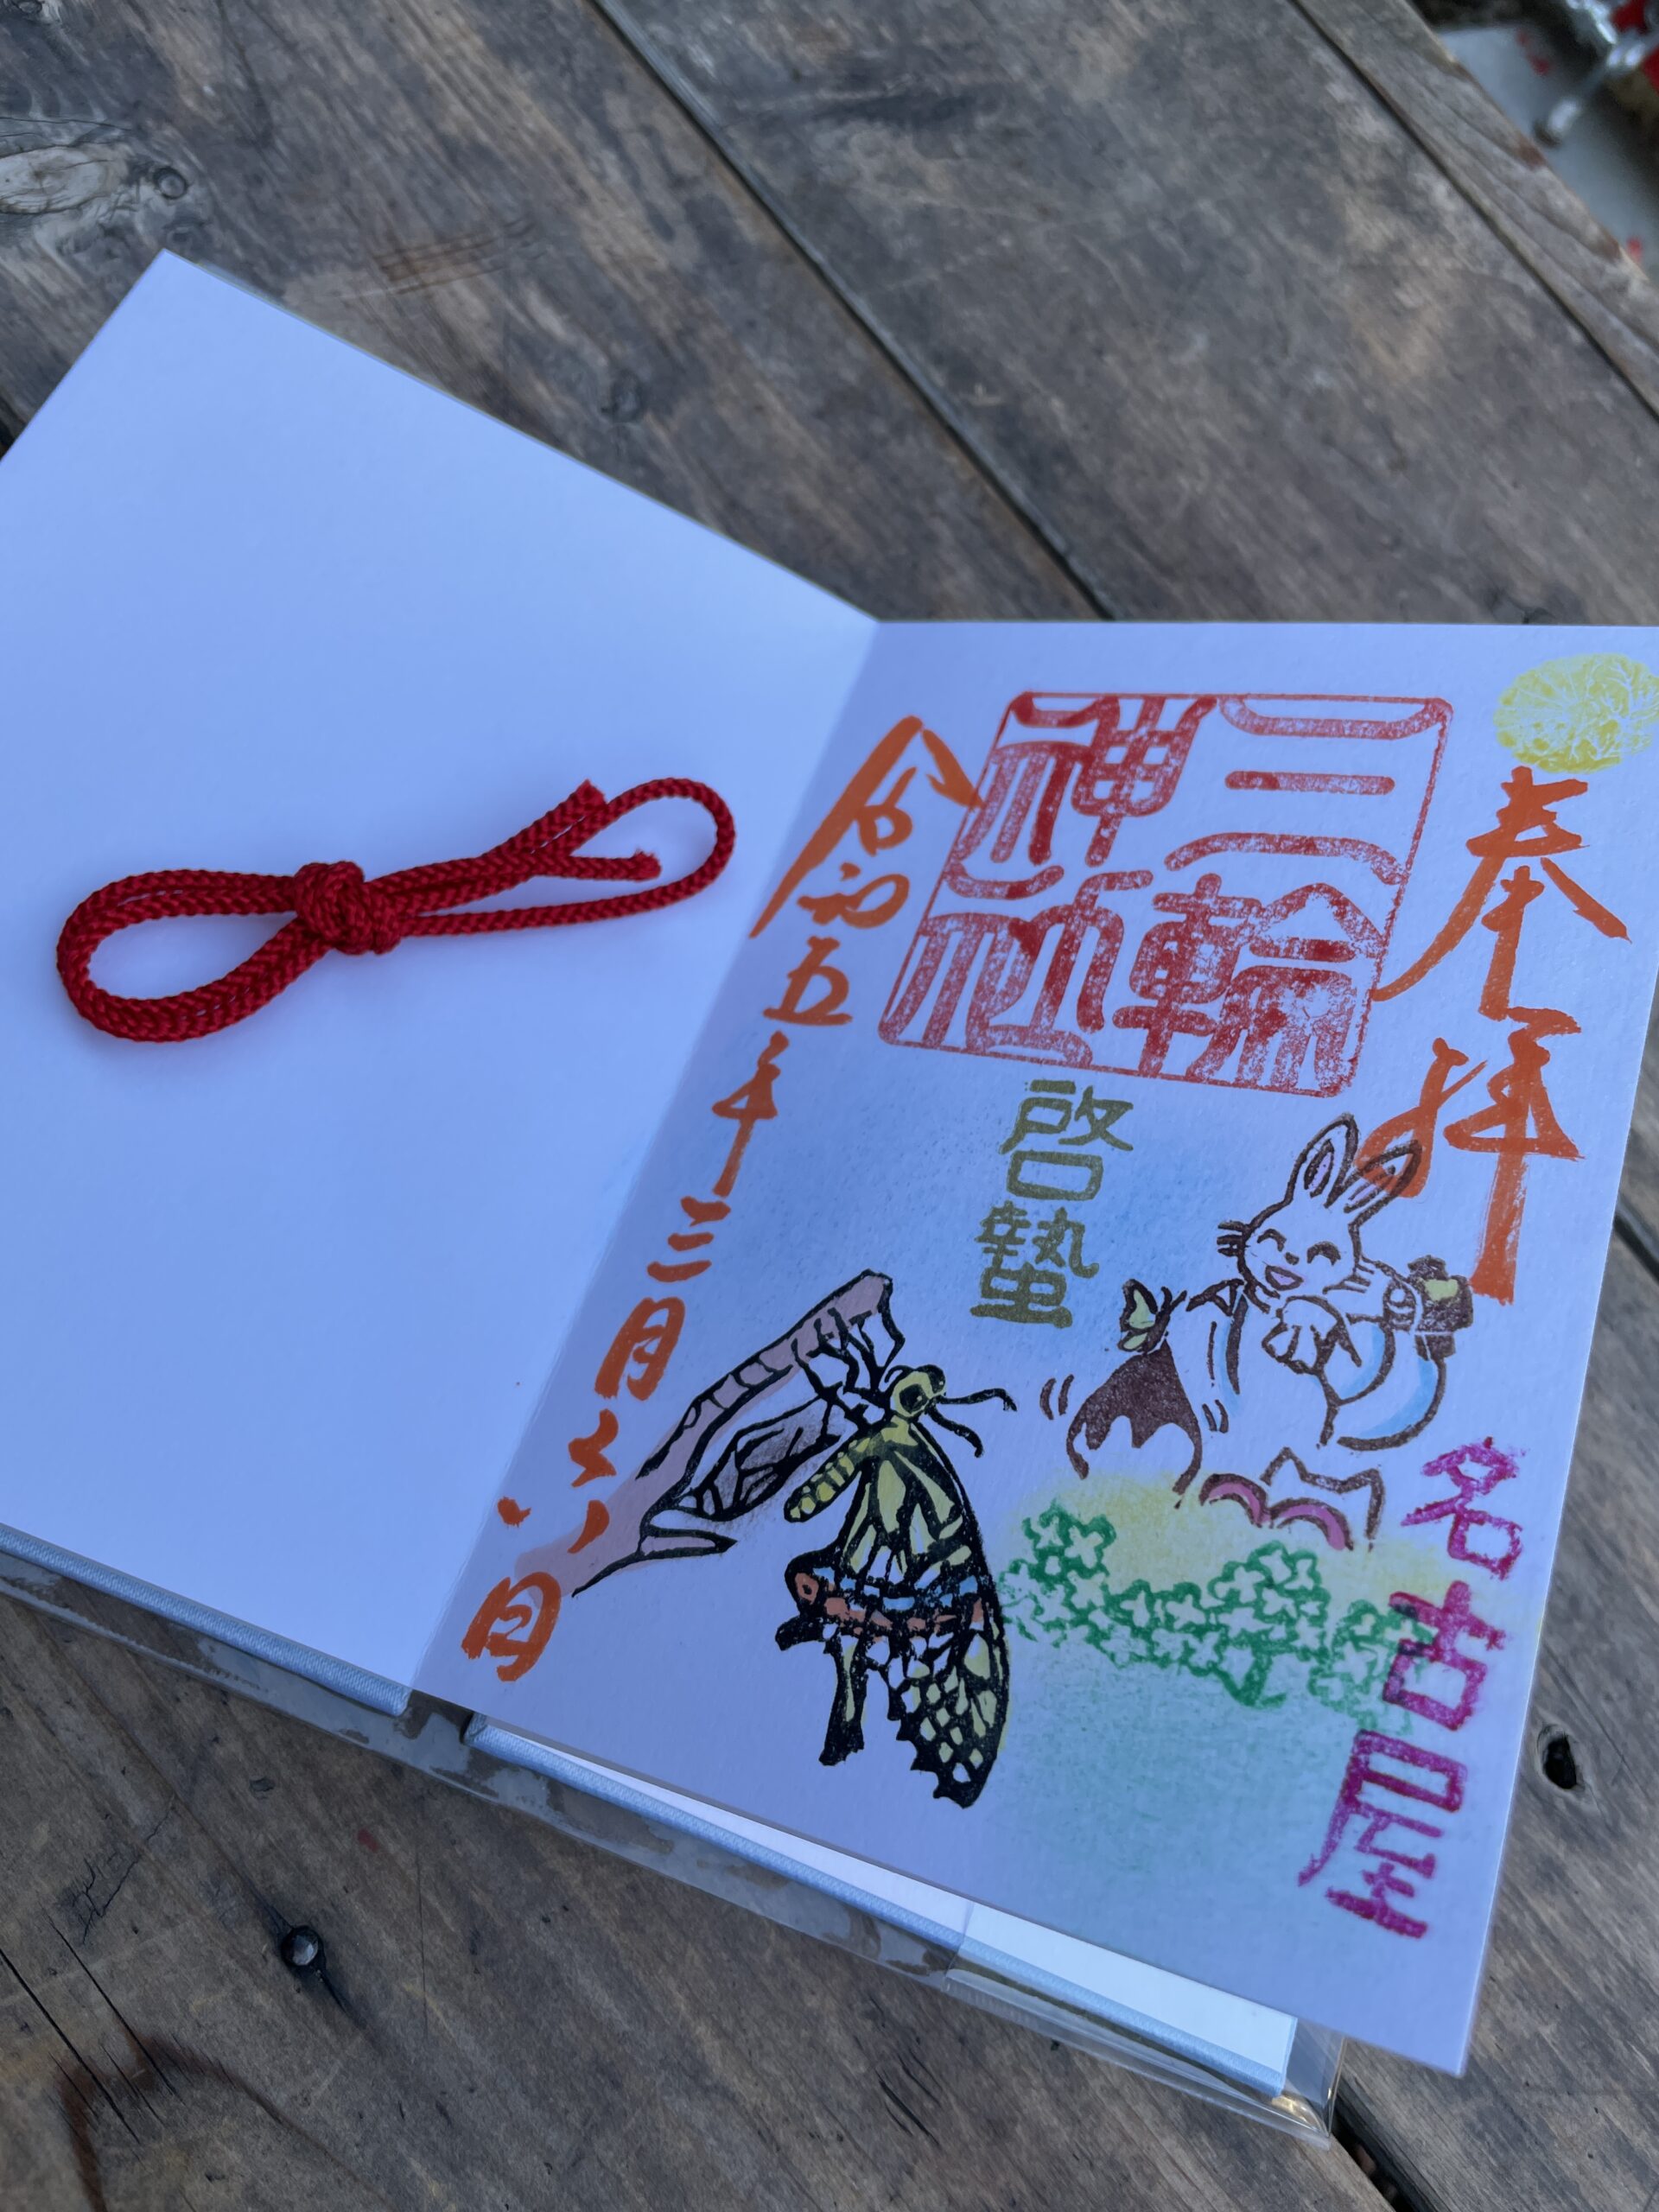 奉拝
名古屋
三輪
神社
啓蟄
令和五年三月六日